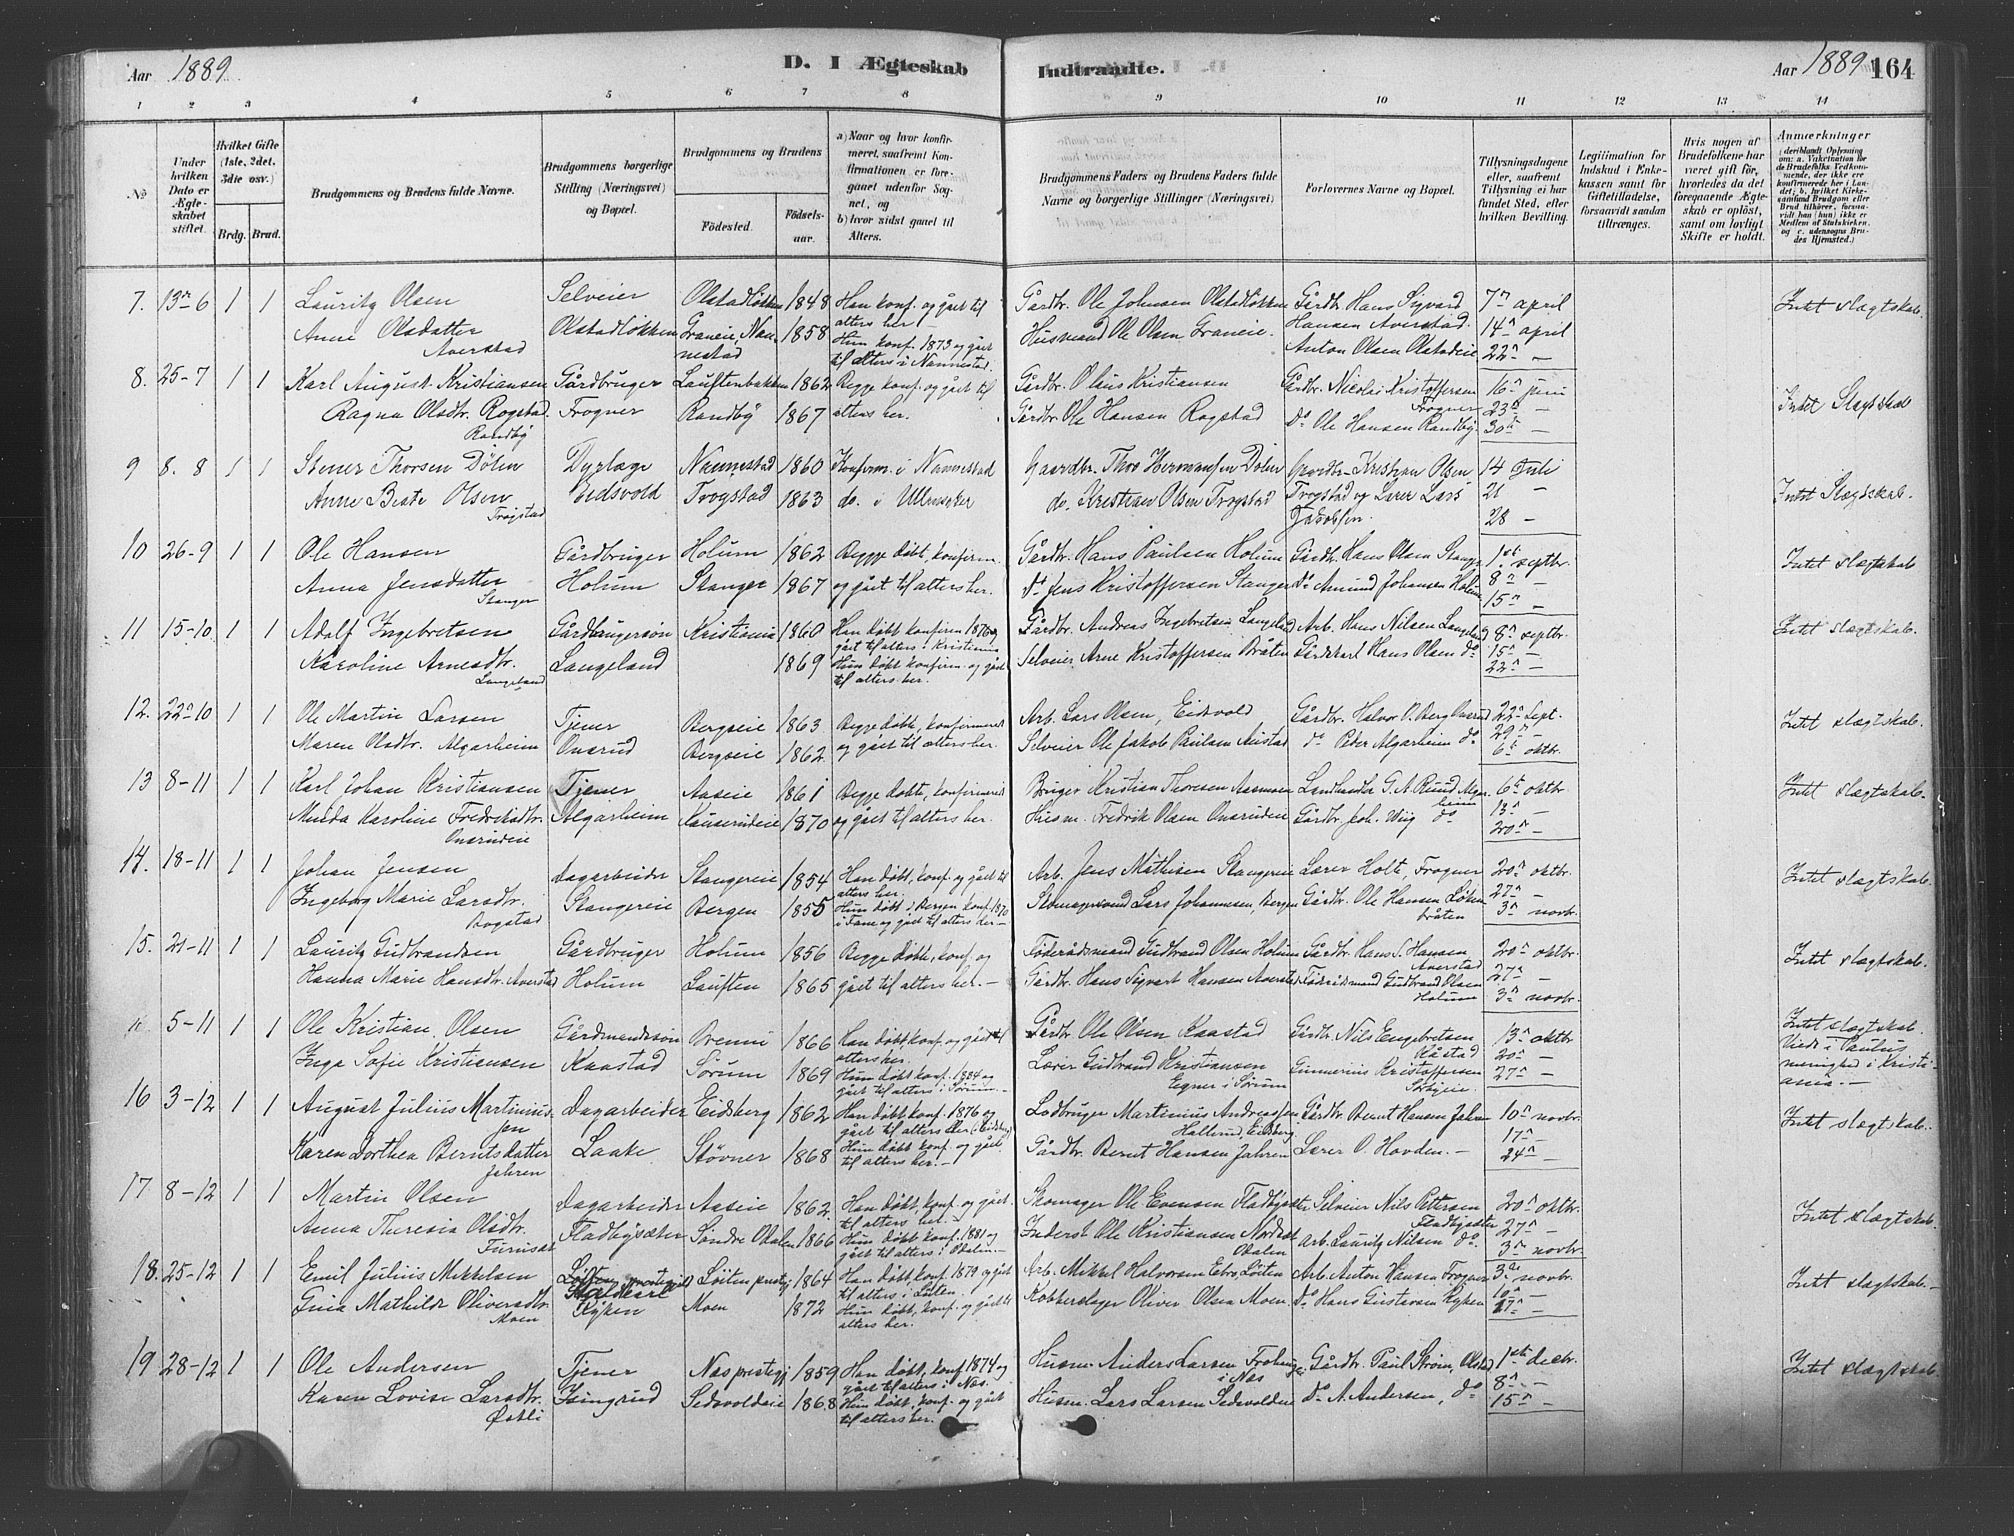 Aar 1889. D. I Ægteskab Indtraadte. Aar 1889 164
1 2 3 4 5 6 7 8 9 10 11 12 13 14
№
Under hvilken Dato er Ægteskabet stiftet.
Hvilket Gifte (1ste, 2det, 3die osv.)
Brdg. Brud.
Brudgommens og Brudens fulde Navne.
Brudgommens borgerlige Stilling (Næringsvei) og Bopæl.
Brudgommens og Brudens
Fødested. Fødselsaar.
a) Naar og hvor konfirmeret, saafremt Konfirmationen er foregaaet udenfor Sognet, og
b) hvor sidst gaaet til Alters.
Brudgommens Faders og Brudens Faders fulde Navne og borgerlige Stillinger (Næringsvei)
Forlovernes Navne og Bopæl.
Tillysningsdagene eller, saafremt Tillysning ei har fundet Sted, efter hvilken Bevilling.
Legitimation for Indskud i Enkekassen samt for Giftetilladelse, forsaavidt saadan tiltrænges.
Hvis nogen af Brudefolkene har været gift før, hvorledes da det foregaaende Ægteskab er opløst, samt om lovligt Skifte er holdt.
Anmærkninger
7. 13de 6 1 1 Lauritz Olsen Selveier Olstadløkken 1848 Han konf. og gået til alters her Gårdbr. Ole Johnsen Olstadløkken Gårdb. Hans Sigvard Hansen Averstad. 7de april Intet slægtskab.
Anne Olsdatter Averstad Olstadløkken Graneie, Nannestad 1858 Hun konf. 1873 og gået til alters i Nannestad. Husmand Ole Olsen Graneie. Anton Olsen Olstadeie 14de april 22de —
8. 25-7 1 1 Karl August Kristiansen Gårdbruger Lauftenbakken 1862 Begge konf. og gået til alters her. Gårdbr. Olaus Kristiansen Gårdbr. Nicolai Kristoffersen Frogner 16de juni Intet Slægtskab
Ragna Olsdtr. Rogstad Randby Frogner Randby 1867 Gårdbr. Ole Hansen Rogstad Do Ole Hansen Randby. 23de — 30te —
9 8. 8 1 1 Stener Thorsen Dølen Dyrlæge Nannestad 1860 Konfirm. i Nannestad Gaardbr. Thor Hermansen Dølen Gaardbr. Kristian Olsen 14 Juli Intet Slægtskab.
Anne Beate Olsen Trøgstad Eidsvold Trøgstad 1863 do. i Ullensaker do. Kristian Olsen Trøgstad Trøgstad og Lærer Lars Jakobsen. 21 — 28 —
10 26-9 1 1 Ole Hansen Gårdbruger Holum 1862 Begge døbt, konfirm. Gårdbr. Hans Paulsen Holum Gårdb. Hans Olsen Stanger 1ste septbr. Intet slægtskab.
Anna Jensdatter Stanger Holum Stanger 1867 og gået til alters her. Do Jens Kristoffersen Stanger Do Amund Johansen Holum 8de — 15de —
11 15-10 1 1 Adolf Ingebretsen Gårdbrugersøn Kristiania 1860 Han døbt konfirm 1876 og gået til alters i Kristiania Gårdbr. Andreas Ingebretsen Langeland Arb. Hans Nilsen Langeland 8de septbr. Intet slægtskab.
Karoline Arnesdtr. Langeland Langeland 1869 Hun døbt konfirm. og gået til alters her. Selveier Arne Kristoffersen Bråten Gårdskarl Hans Olsen do 15de — 22de —
12. 22de 10 1 1 Ole Martin Larsen Tjener Bergseie 1863 Begge døbte, konfirmeret Arb. Lars Olsen, Eidsvold Gårdbr. Halvor O. Berg Onsrud 22de Sept. Intet slægtskab.
Maren Olsdtr. Algarheim Onsrud Bergseie 1862 og gået til alters her. Selveier Ole Jakob Paulsen Austad do Peder Algarheim do 29de — 6te oktbr.
13 8-11 1 1 Karl Johan Kristiansen Tjener Aaseie 1861 Begge døbte, konfirmeret Bruger Kristian Thoresen Aasmoen Landhandler G. A. Ruud Algarheim 6te oktbr. Intet slægtskab.
Minda Karoline Fredriksdtr. Onsrudeie Algarheim Kauserudeie 1870 og gået til alters her. Husm. Fredrik Olsen Onsrudeie Gårdbr. Joh. Wiig do 13de — 20de —
14. 18-11 1 1 Johan Jensen Dagarbeider Stangereie 1854 Han døbt, konf. og gået til alters her. Arb. Jens Mathisen Stangereie Lærer Holt, Frogner 20de oktbr. Intet slægtskab.
Ingeborg Marie Larsdtr. Rogstad Stangereie Bergen 1855 Hun døbt i Bergen konf. 1870 i Fane og gået til alters her— Skomagersvend Lars Johannesen, Bergen Gårdbr. Ole Hansen Løkenbråten 27de — 3de novbr.
15. 21-11 1 1 Lauritz Gudbrandsen Gårdbruger Holum 1856 Begge døbte, konf. og Føderådsmand Gudbrand Olsen Holum Gårdbr. Hans S. Hansen Averstad 20de oktbr. Intet slægtskab.
Hanna Marie Hansdtr. Averstad Holum Lauften 1865 gået til alters her. — Gårdbr. Hans Sigvart Hansen Averstad Føderådsmand Gudbrand Olsen Holum 27de — 3de novbr.
5-11 1 1 Ole Kristian Olsen Gårdmandssøn Brenni 1866 Han døbt, konf. og gået til alters her. Gårdbr. Ole Olsen Kaastad Gårdb. Nils Engebretsen Kåstad 13de oktbr Intet slægtskab. Viede i Paulus menighed i Kristiania. —
Inga Sofie Kristiansen Kaastad Sørum 1869 Hun døbt, konf. 1884 og gået til alters i Sørum. Lærer Gudbrand Kristiansen Egner i Sørum Gunnerius Kristoffersen 20de — 27de —
16 3-12 1 1 August Julius Martiniussen Dagarbeider Eidsberg 1862 Han døbt, konf. 1876 og gået til alters her (Eidsberg) Lodbruger Martinius Andreassen Hallerud, Eidsberg Gårdbr. Bernt Hansen Jahren 10de novbr. Intet slægtskab.
Karen Dorthea Berntsdatter Jahren Laake Støvner 1868 Hun døbt konf. og gået til alters her. — Gårdbr. Bernt Hansen Jahren Lærer O. Hovden. — 17de — 24de —
17 8-12 1 1 Martin Olsen Dagarbeider Aaseie 1862 Han døbt, konf. og gået til alters her. Skomager Ole Evensen Fladbysæter Selveier Nils Pettersen Fladbysæter 20de oktbr. Intet slægtskab.
Anna Theresia Olsdtr. Furuset Fladbysæter Søndre Odalen 1866 Hun døbt, konf. 1881 og gået til alters i Odalen— Inderst Ole Kristiansen Nordset Odalen Arb. Lauritz Nilsen do. 27de — 3de novbr
18. 25-12 1 1 Emil Julius Mikkelsen Løiten prestegjeld Løiten prestgj 1864 Han døbt, konf. 1879 og gået til alters i Løiten. Arb. Mikkel Halvorsen Ebro, Løiten Arb. Anton Hansen Frogner 3de novbr. Intet slægtskab. —
Gina Mathilde Oliversdtr. Moen Ryken Moen 1872 Hun døbt, konf. og gået til alters her. Kobberslager Oliver Olsen Moen Do Hans Gustavsen Ryken 10de — 17de —
19 28-12 1 1 Ole Andersen Tjener Nas prestegj 1859 Han døbt, konf. 1874 og gået til alters i Nas. Husm. Anders Larsen i Nas Gårdbr. Paul Strøm, Olstad 1ste decbr. Intet slægtskab.
Karen Lovise Larsdtr. Østli Isingrud Sedsvoldeie 1868 Hun døbt, konf. og gået til alters her. Husm. Lars Larsen Sedsvoldeie Do A. Andersen, do 8de — 15de —